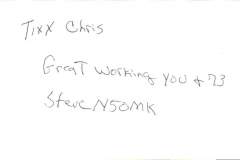 Tixx Chris
Great Working you & 73
Steve N5OMK